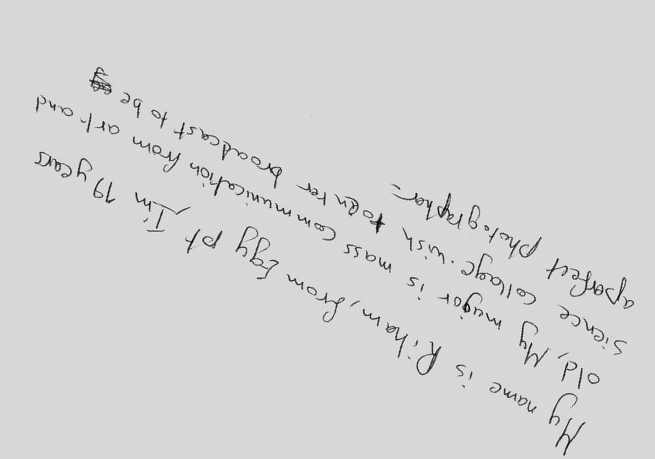 My name is Riham, from Egypt, I'm 19 years
old, My mujor is mass communication from art and
sience collage. wish to enter broadcast to be
a parfect photographer.